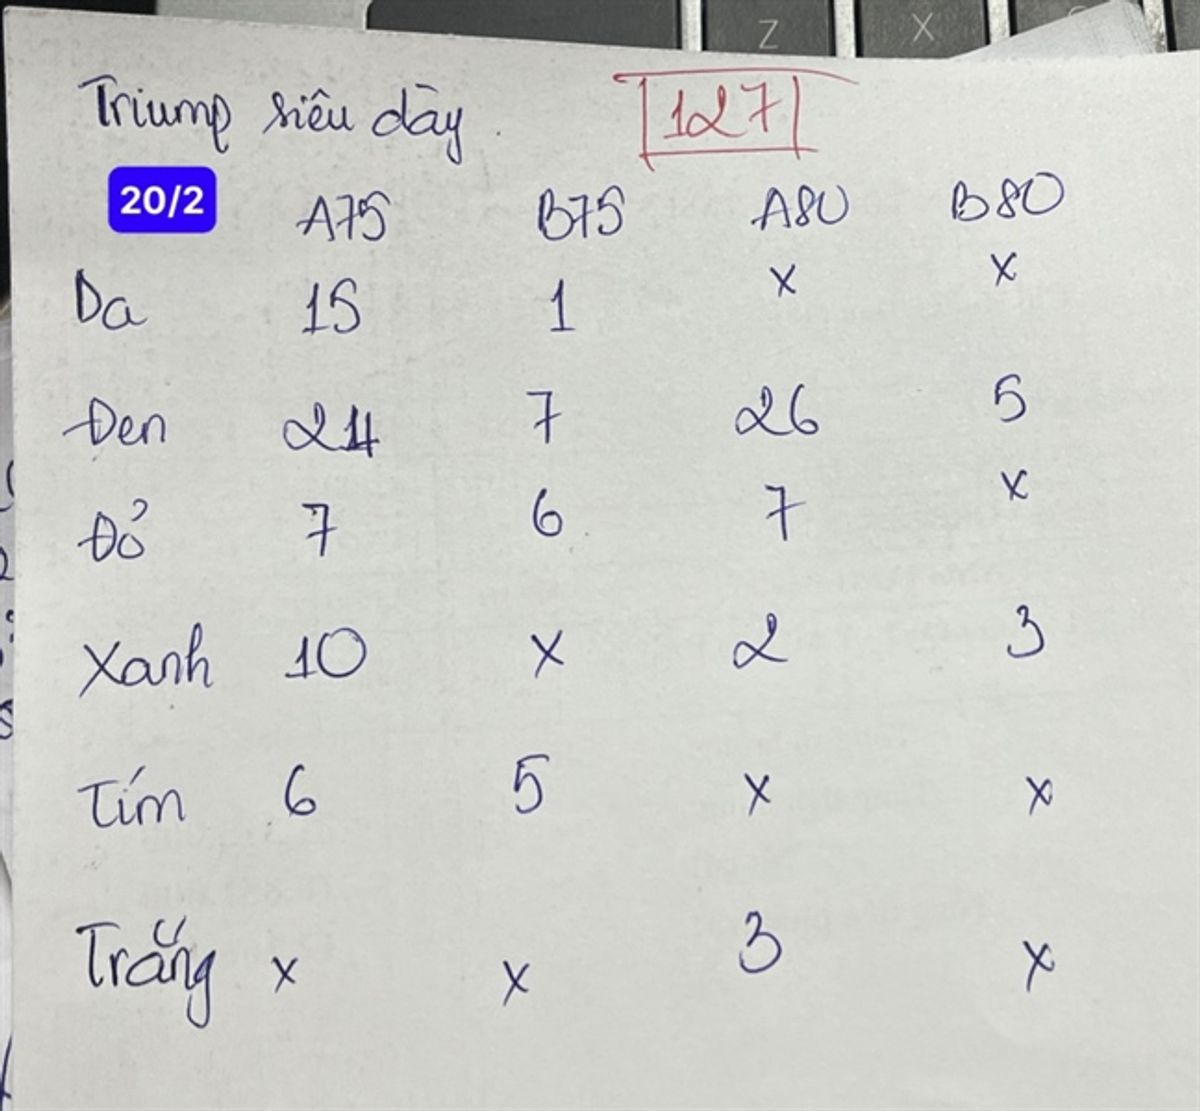 Z X
Triump siêu dày. 127
20/2 A75 B75 A80 B80
Da 15 1 x x
Đen 24 7 26 5
Đỏ 7 6 7 x
Xanh 10 x 2 3
Tím 6 5 x x
Trắng x x 3 x